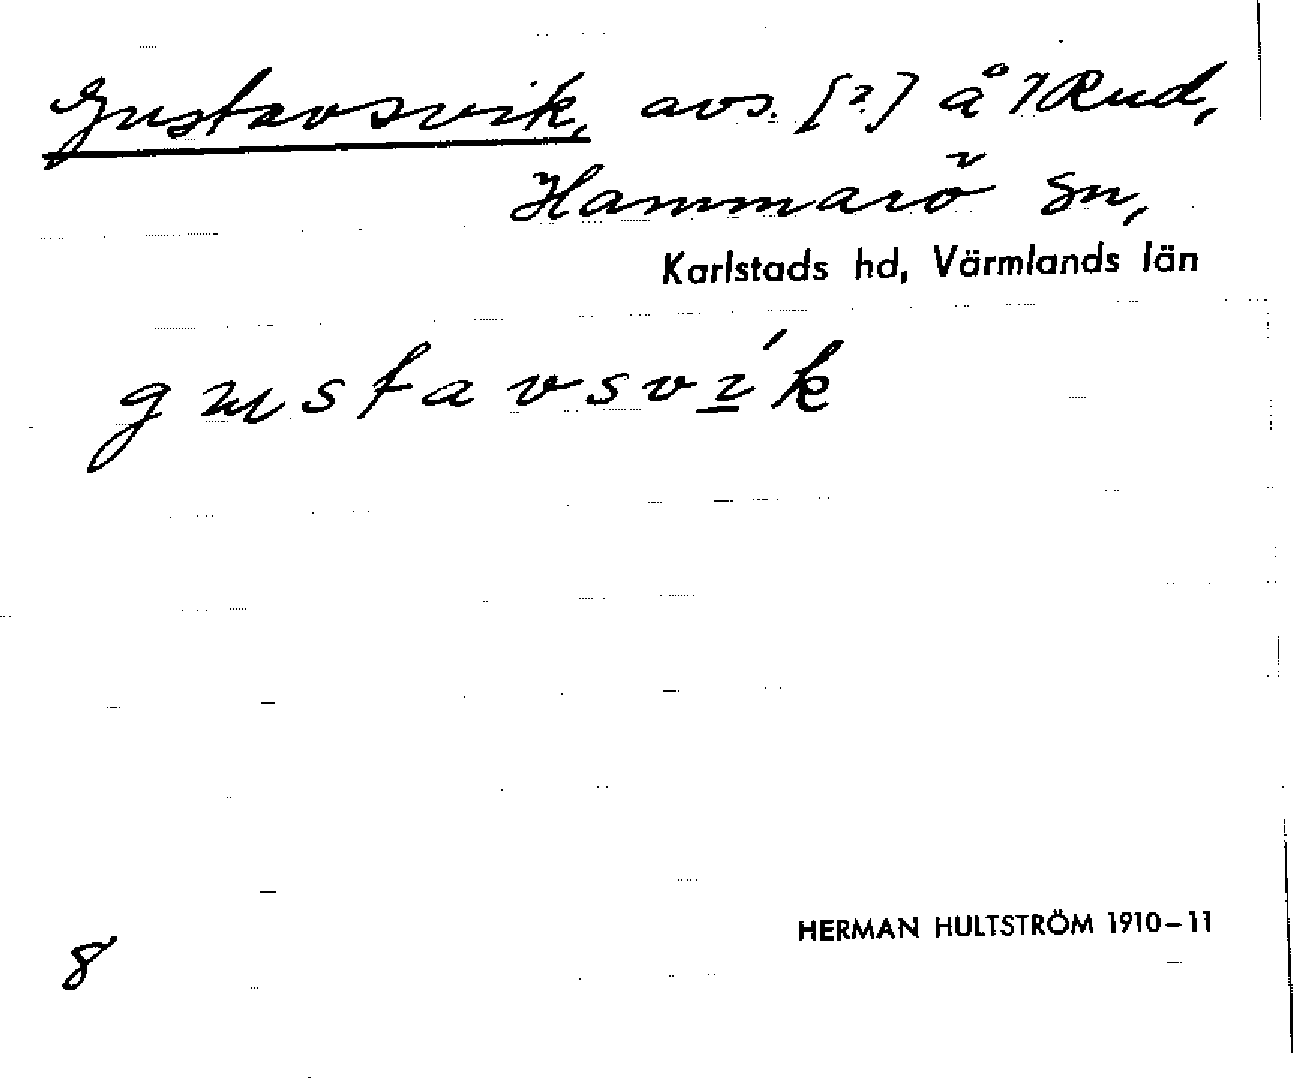 Gustavsvik, avs. [?] å 1 Rud,
Hammarö sn,
Karlstads hd, Värmlands län
gustavsvík
8
HERMAN HULTSTRÖM 1910–11